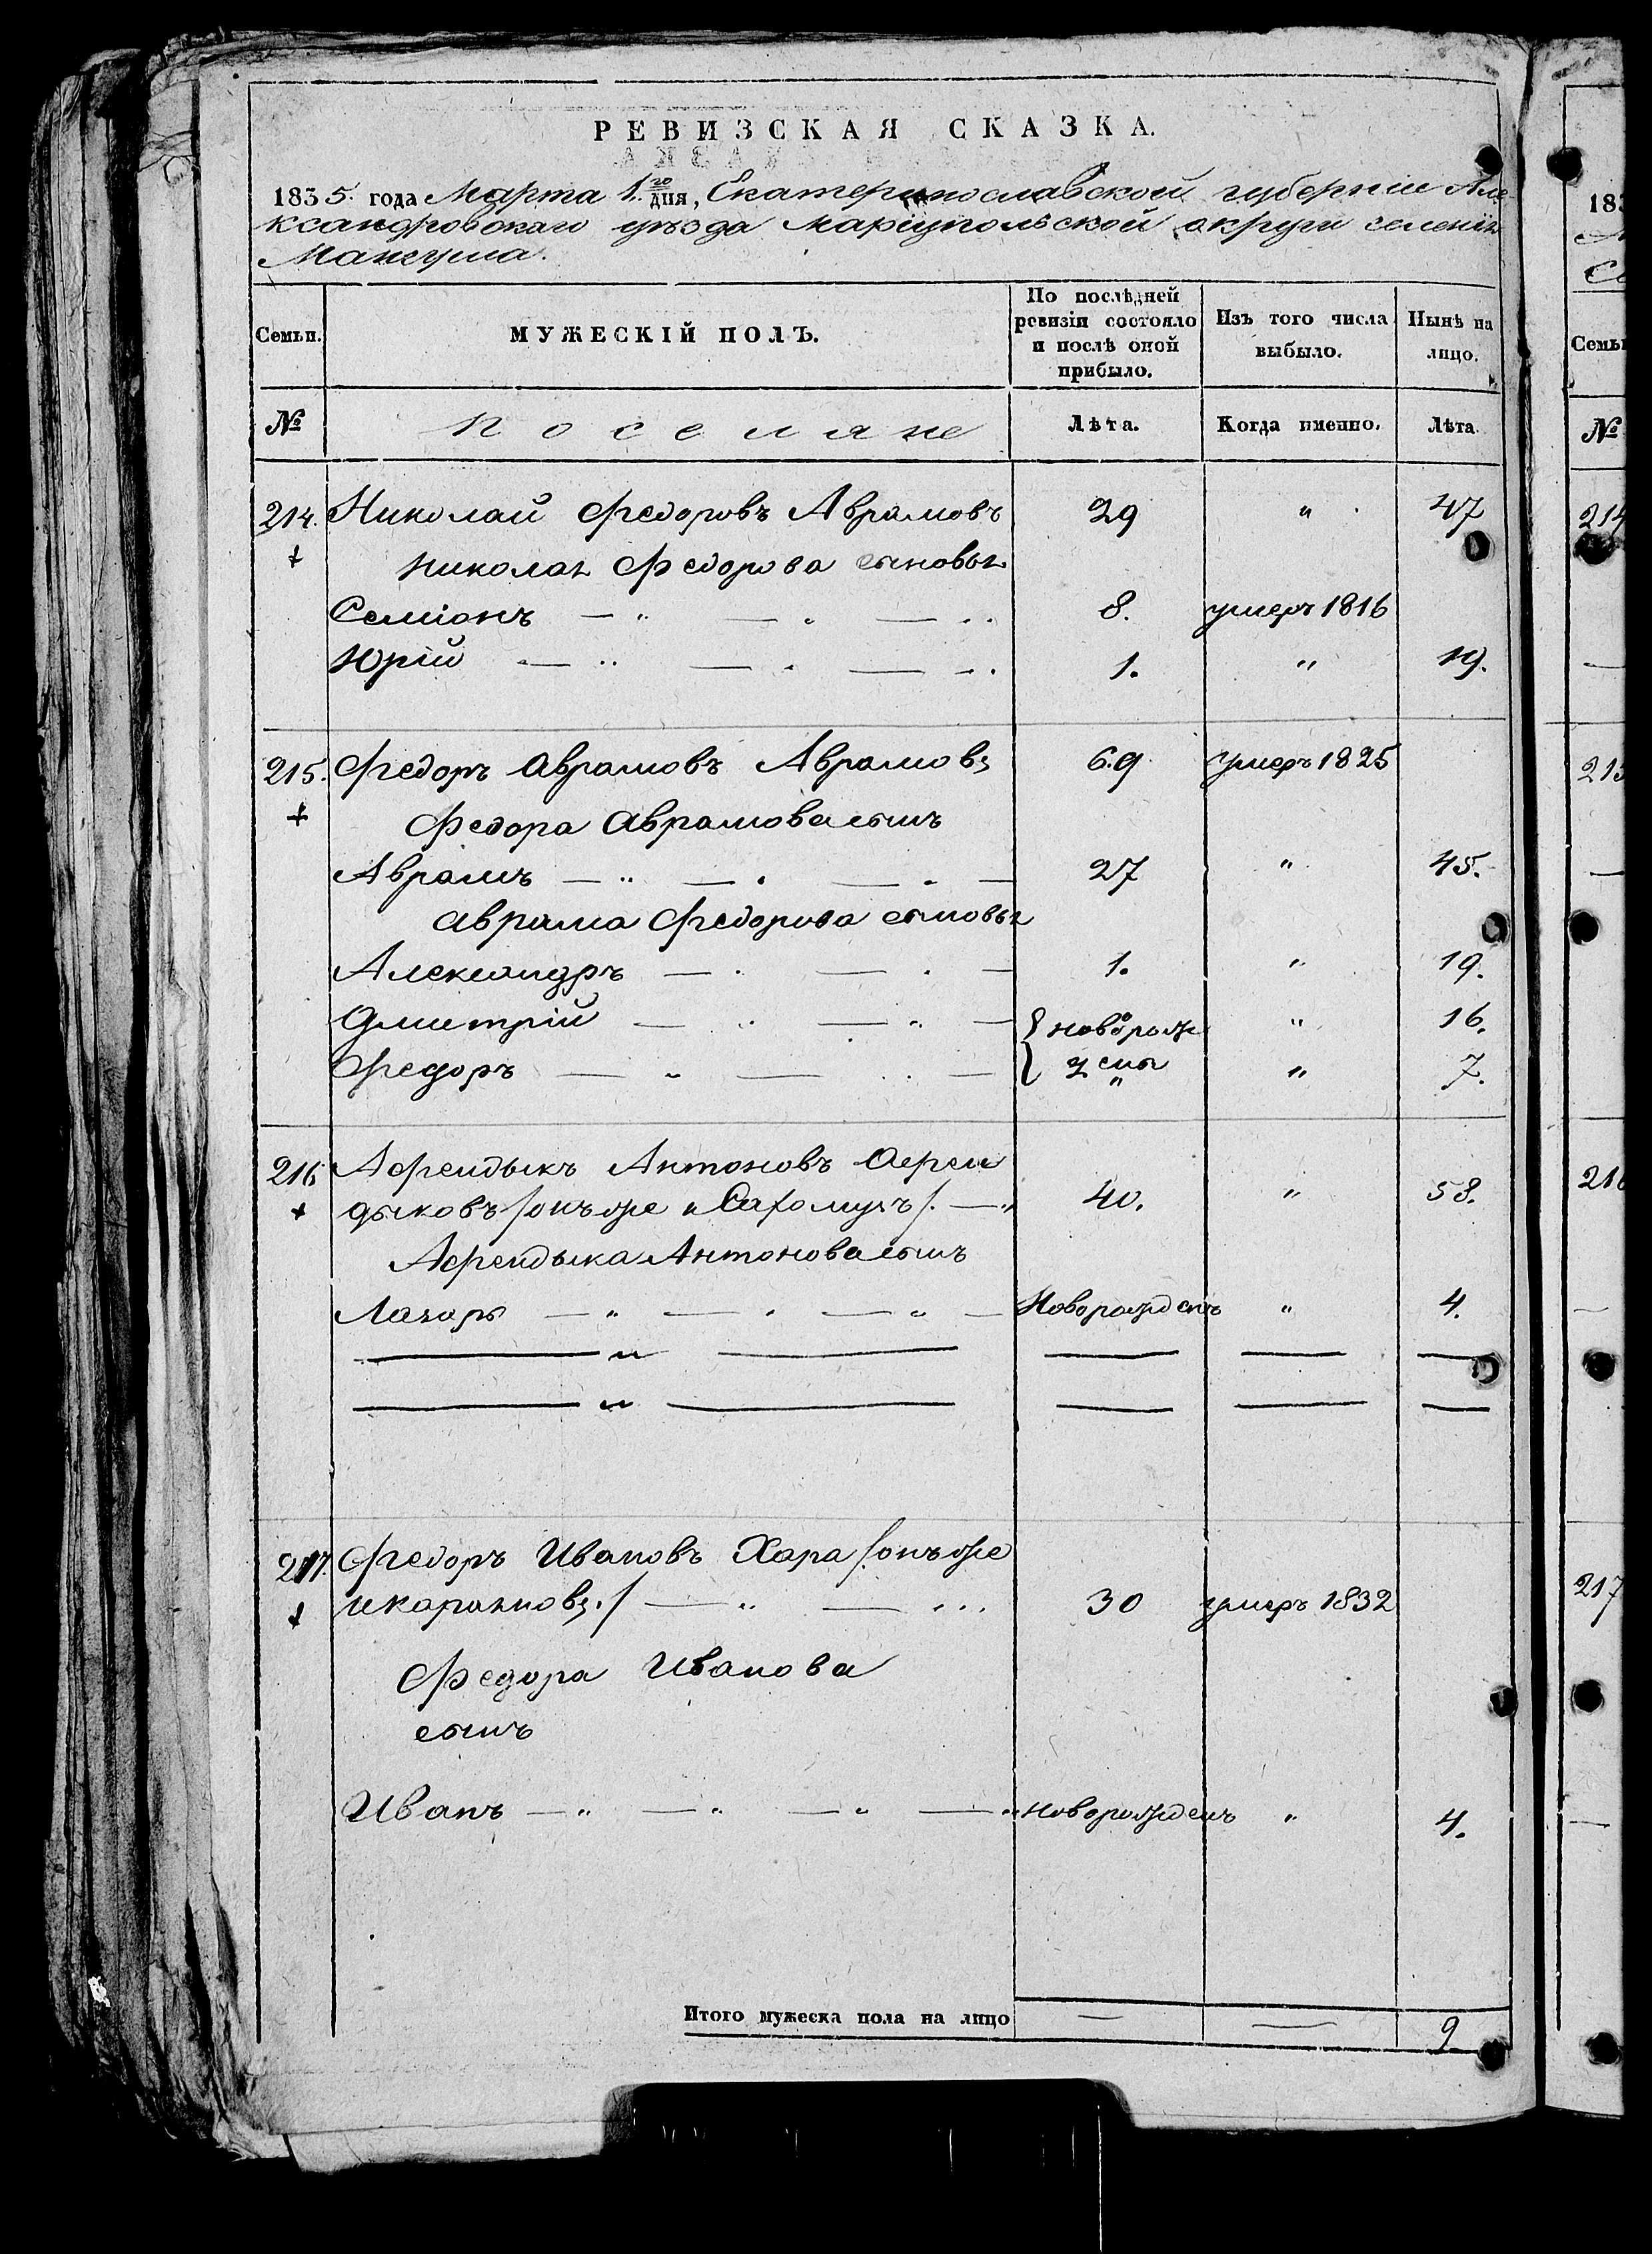 РЕВИЗСКАЯ СКАЗКА.
1835. года Марта 1.го дня, Екатеринославской губерніи Але
ксандровскаго уѣзда Маріупольской округи селенія
Мангуша.
Семьи. МУЖЕСКІЙ ПОЛЪ. По послѣдней ревизіи состояло и послѣ оной прибыло. Изъ того числа выбыло. Нынѣ на лицо.
№ Поселяне Лѣта. Когда именно. Лѣта.
214. Николай Федоровъ Аврамовъ 29 " 47
Николая Федорова сыновья
Семіонъ — " — " — " 8. умеръ 1816
Юрій — " — " — " 1. " 19.
215. Федоръ Аврамовъ Аврамовъ 69 умеръ 1825
Федора Аврамова сынъ
Аврамъ — " — " — " — 27 " 45.
Аврама Федорова сыновья
Александръ — " — " — 1. " 19.
Дмитрій — " — " — новорож " 16.
Федоръ — " — " — дены " 7.
216 Афендыкъ Антоновъ Афен
дыковъ /онъ же и Сахомучъ/. — " 40. " 58.
Афендыка Антонова сынъ
Лазарь — " — " — " — Новорожденъ " 4.
— " —
— " —
217. Федоръ Ивановъ Хара /онъ же
и каражновъ./ — " — " 30 умеръ 1832
Федора Иванова
сынъ
Иванъ — " — " — " — " новорожденъ " 4.
Итого мужеска пола на лицо — — 9
183
Се
Семьи
№
214
215
216
217